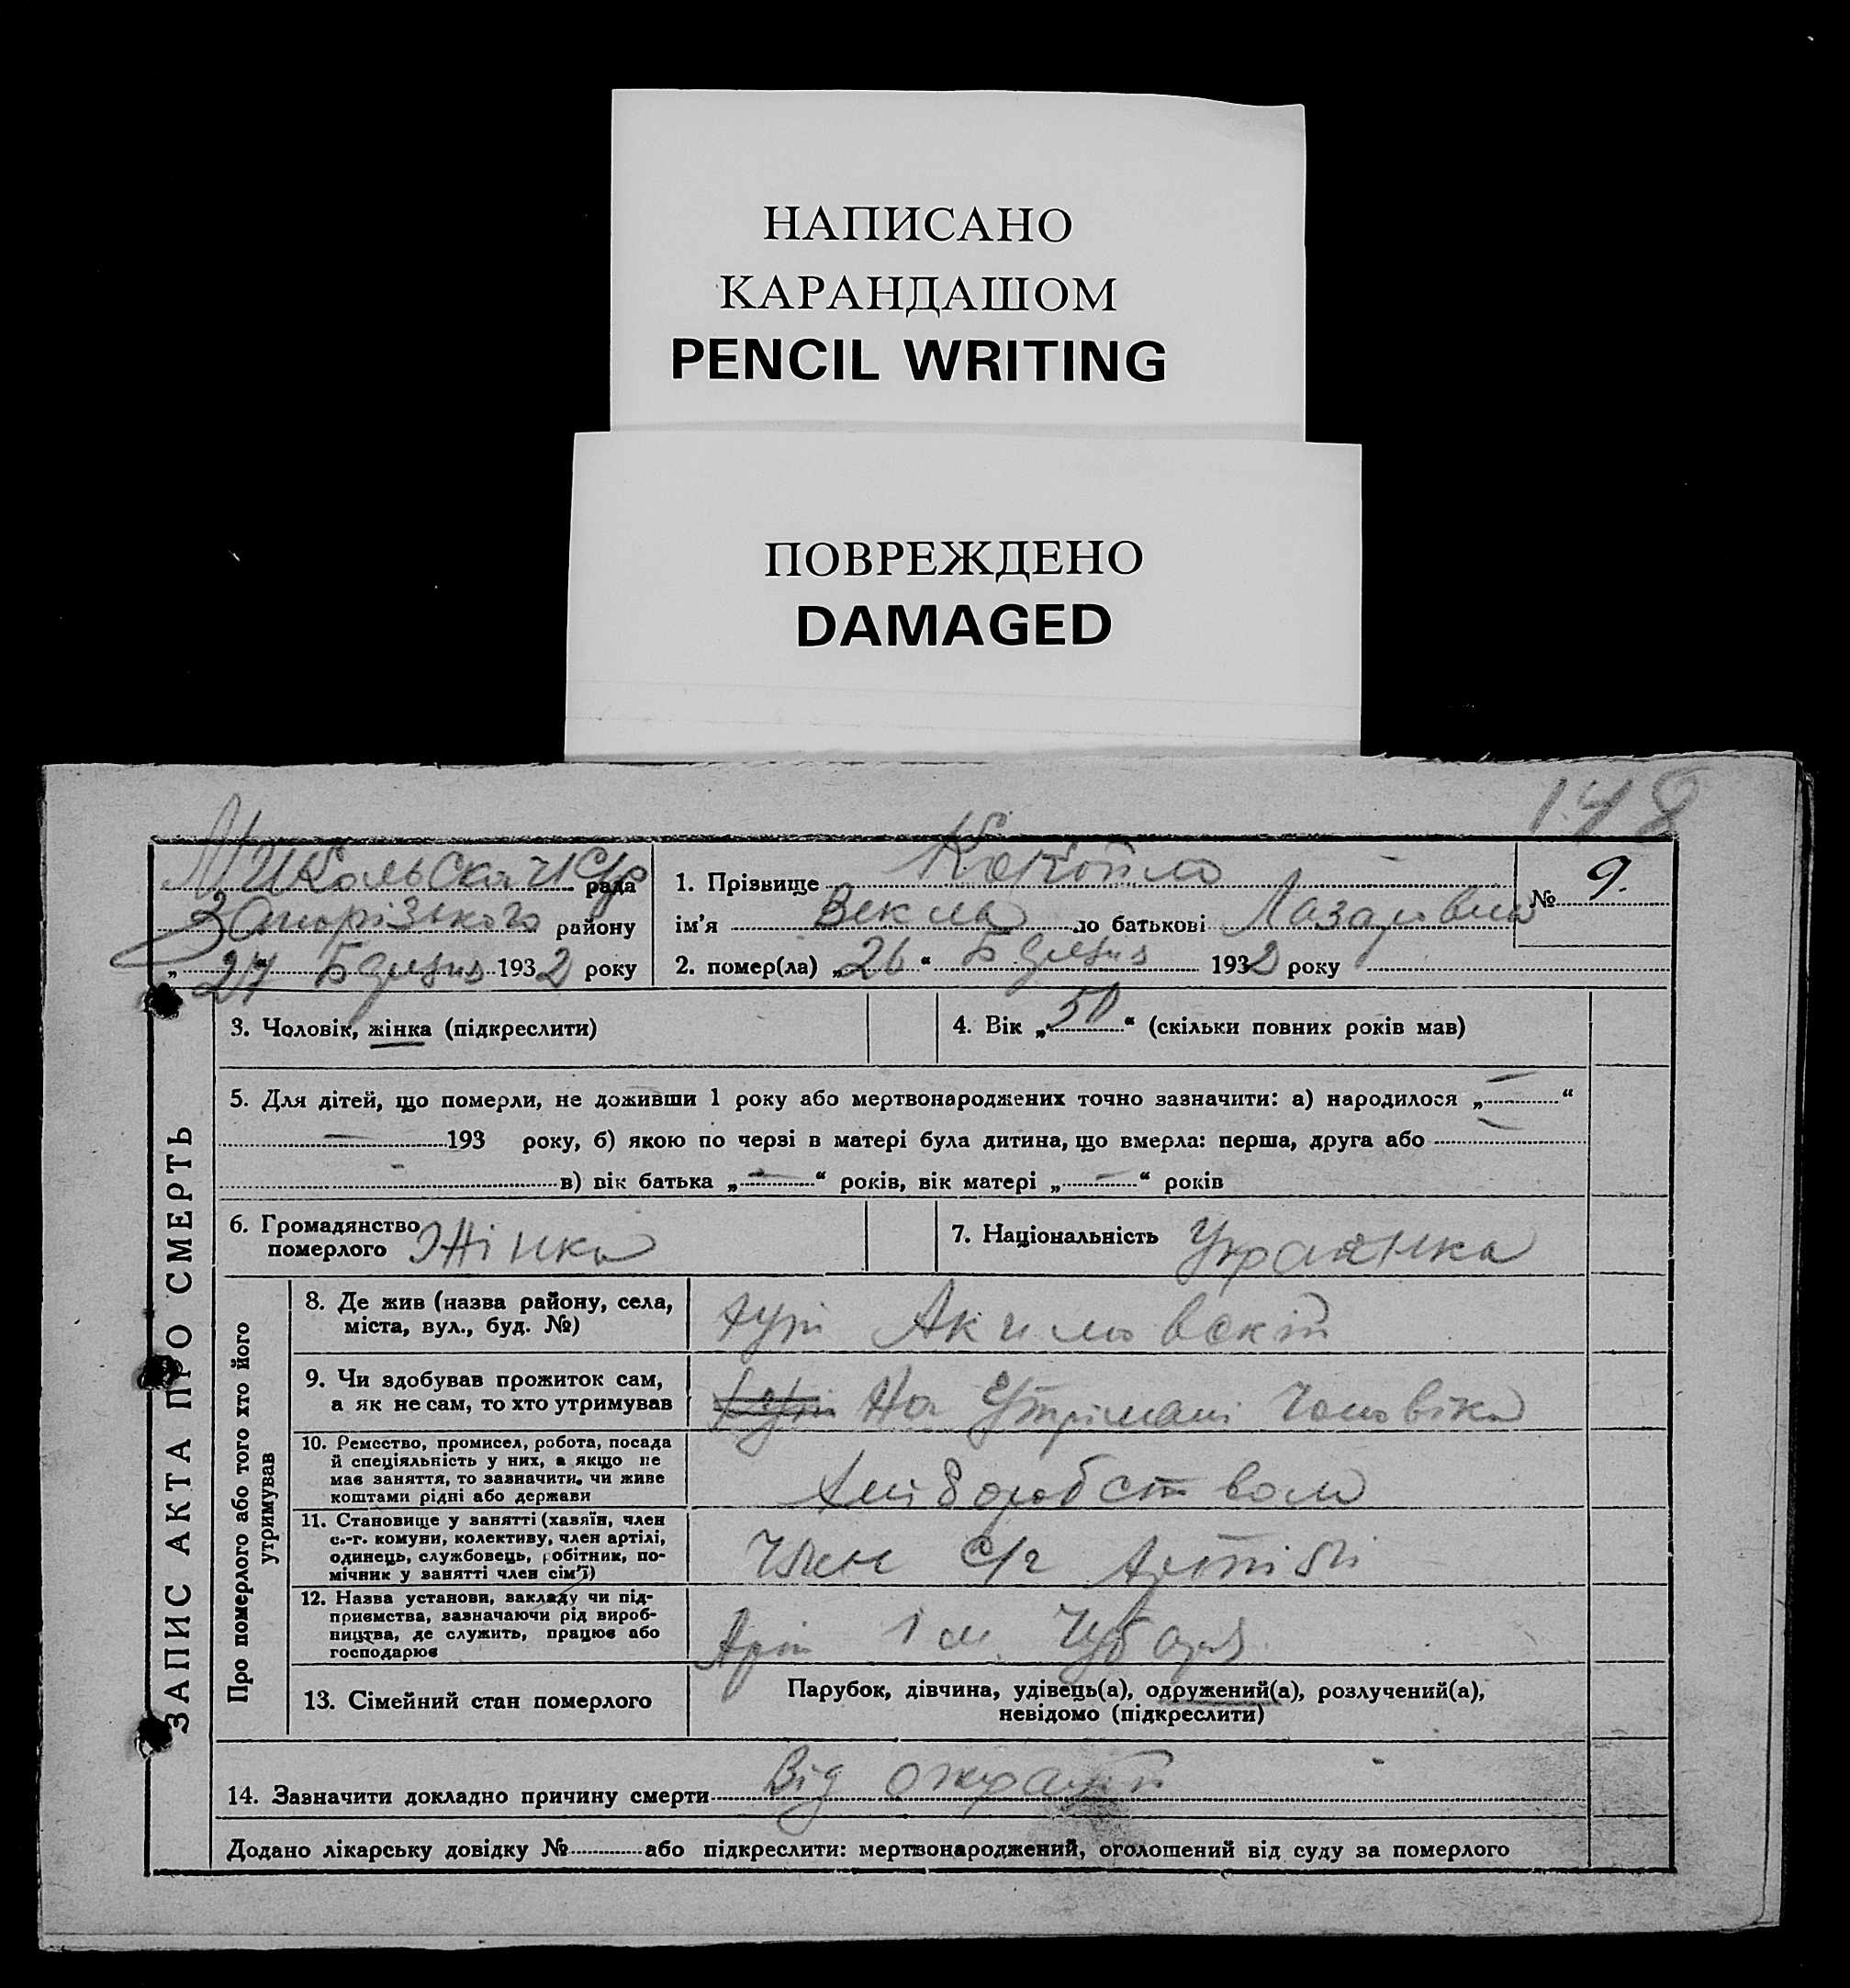 НАПИСАНО
КАРАНДАШОМ
PENCIL WRITING
ПОВРЕЖДЕНО
DAMAGED
148
рада
Запорізького району
„27“ 1932 року
1. Прізвище
ім'я Векла по батькові Лазарівна
2. помер(ла) „26“ 1932 року
№ 9.
ЗАПИС АКТА ПРО СМЕРТЬ
3. Чоловік, жінка (підкреслити)
4. Вік „50“ (скільки повних років мав)
5. Для дітей, що померли, не доживши 1 року або мертвонароджених точно зазначити: а) народилося „—“
— 193 року, б) якою по черзі в матері була дитина, що вмерла: перша, друга або —
— в) вік батька „—“ років, вік матері „—“ років
6. Громадянство
померлого Жінка
7. Національність Украінка
Про померлого або того хто його
утримував
8. Де жив (назва району, села,
міста, вул., буд. №)
хут
9. Чи здобував прожиток сам,
а як не сам, то хто утримував
На Утрімані Чоловіка
10. Ремество, промисел, робота, посада
й спеціяльність у них, а якщо не
має заняття, то зазначити, чи живе
коштами рідні або держави
Хліборобством
11. Становище у занятті (хазяїн, член
с.-г. комуни, колективу, член артілі,
одинець, службовець, робітник, по-
мічник у занятті член сім'ї)
Член С/г Артіли
12. Назва установи, закладу чи під-
приємства, зазначаючи рід вироб-
ництва, де служить, працює або
господарює
Арт ім Чубаря
13. Сімейний стан померлого
Парубок, дівчина, удівець(а), одружений(а), розлучений(а),
невідомо (підкреслити)
14. Зазначити докладно причину смерти Від
Додано лікарську довідку № або підкреслити: мертвонароджений, оголошений від суду за померлого